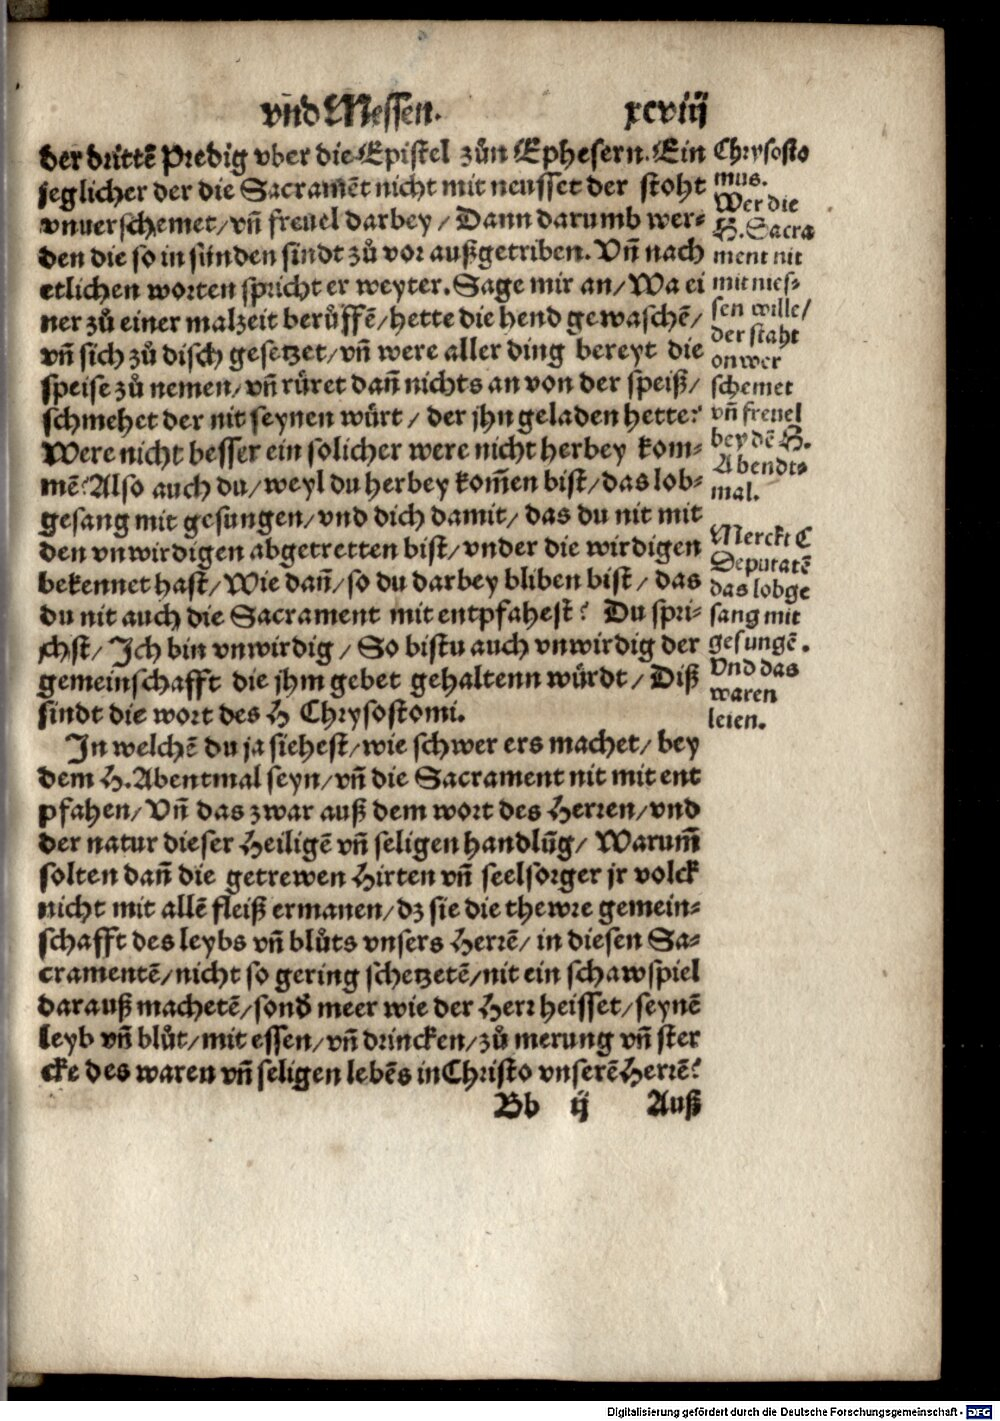 vñd Messen. xcviij
der drittẽ Predig vber die Epistel zůn Ephesern. Ein
jeglicher der die Sacramẽt nicht mit neusset der stoht
vnuerschemet/ vñ freuel darbey / Dann darumb wer⸗
den die so in sünden sindt zů vor außgetriben. Vñ nach
etlichen worten spricht er weyter. Sage mir an/ Wa ei
ner zů einer malzeit berůffẽ/ hette die hend gewaschẽ/
vñ sich zů disch gesetzet/ vñ were aller ding bereyt die
speise zů nemen/ vñ rüret dañ nichts an von der speiß/
schmehet der nit seynen würt / der jhn geladen hette?
Were nicht besser ein solicher were nicht herbey kom⸗
mẽ? Also auch du/ weyl du herbey kom̃en bist/ das lob⸗
gesang mit gesungen/ vnd dich damit/ das du nit mit
den vnwirdigen abgetretten bist/ vnder die wirdigen
bekennet hast/ Wie dañ/ so du darbey bliben bist/ das
du nit auch die Sacrament mit entpfahest? Du spri⸗
chst/ Ich bin vnwirdig / So bistu auch vnwirdig der
gemeinschafft die jhm gebet gehaltenn würdt/ Diß
sindt die wort des H Chrysostomi.
In welchẽ du ja siehest/ wie schwer ers machet/ bey
dem H. Abentmal seyn/ vñ die Sacrament nit mit ent
pfahen/ Vñ das zwar auß dem wort des Herren/ vnd
der natur dieser Heiligẽ vñ seligen handlũg/ Warum̃
solten dañ die getrewen Hirten vñ seelsorger jr volck
nicht mit allẽ fleiß ermanen/ dz sie die thewre gemein⸗
schafft des leybs vñ blůts vnsers Herrẽ/ in diesen Sa⸗
cramentẽ/ nicht so gering schetzetẽ/ nit ein schawspiel
darauß machetẽ/ sond̃ meer wie der Herr heisset/ seynẽ
leyb vñ blůt/ mit essen/ vñ drincken/ zů merung vñ ster
cke des waren vñ seligen lebẽs in Christo vnserẽ Herrẽ?
Bb ij Auß
Chrysosto
mus.
Wer die
H. Sacra
ment nit
mit nies⸗
sen wille/
der staht
onver
schemet
vñ freuel
bey dẽ H.
Abendt⸗
mal.
Merckt C
Deputatẽ
das lobge
sang mit
gesungẽ.
Vnd das
waren
leien.
Digitalisierung gefördert durch die Deutsche Forschungsgemeinschaft - DFG